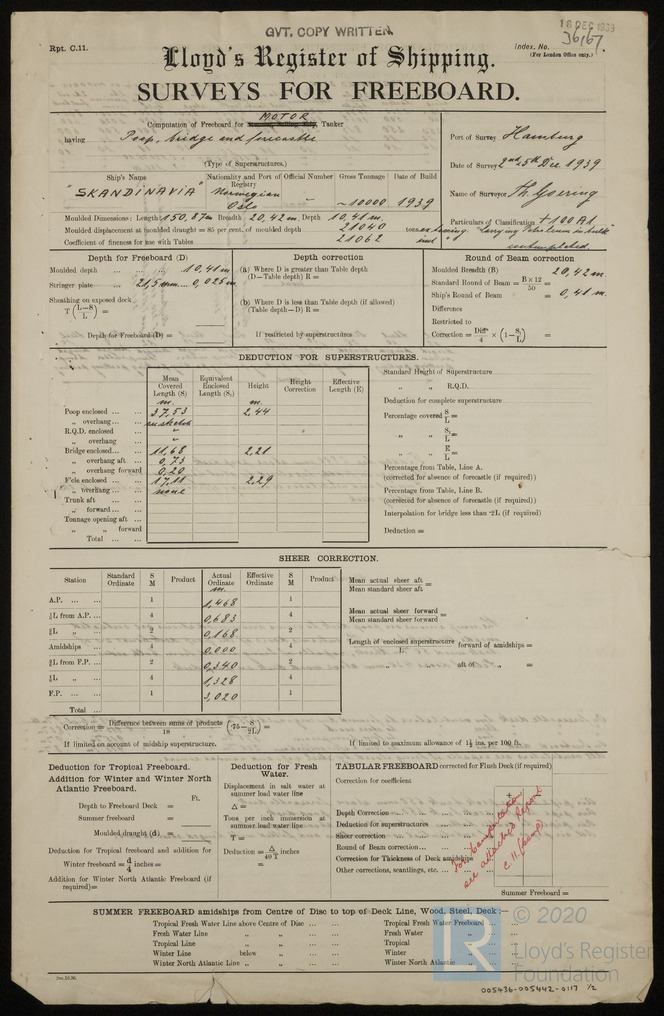 GVT. COPY WRITTEN.
18 DEC 1939
Rpt. C.11.
Index. No. 36167.
(For London Office only.)
Lloyd's Register of Shipping.
SURVEYS FOR FREEBOARD.
Computation of Freeboard for MOTOR Tanker
having Poop, bridge and forecastle
(Type of Superstructures.)
Port of Survey Hamburg
Date of Survey 2nd, 5th Dec 1939
Name of Surveyor Th. Goering
Particulars of Classification +100A1
"Carrying Petroleum in bulk"
contemplated.
Ship's Name
Nationality and Port of Registry
Official Number
Gross Tonnage
Date of Build
"SKANDINAVIA"
Norwegian
Oslo
~10000
1939
Moulded Dimensions: Length 150,87m Breadth 20,42m Depth 10,41m.
Moulded displacement at moulded draught = 85 per cent. of moulded depth 21040 tons
Coefficient of fineness for use with Tables 21062 incl
Depth for Freeboard (D)
Moulded depth ... ... ... 10,41m
Stringer plate ... 21,5mm... 0,025m
Sheathing on exposed deck
T (L–S / L) =
Depth for Freeboard (D) =
Depth correction
(a) Where D is greater than Table depth
(D—Table depth) R =
(b) Where D is less than Table depth (if allowed)
(Table depth—D) R =
If restricted by superstructures
Round of Beam correction
Moulded Breadth (B) 20,42m.
Standard Round of Beam = B × 12 / 50 =
Ship's Round of Beam = 0,41 m.
Difference
Restricted to
Correction = Diff / 4 × (1 – S / L) =
DEDUCTION FOR SUPERSTRUCTURES.
Mean Covered Length (S)
Equivalent Enclosed Length (S₁)
Height
Height Correction
Effective Length (E)
m. m.
Poop enclosed ... ... 37,53 2,44
„ overhang ... ... sketch
R.Q.D. enclosed "
„ overhang "
Bridge enclosed ... ... 11,68 2,21
„ overhang aft ... 0,73
„ overhang forward 0,20
F'cle enclosed ... ... 17,11 2,29
„ overhang ... ... none
Trunk aft ... ...
„ forward ... ...
Tonnage opening aft ...
„ „ forward
Total ... ...
Standard Height of Superstructure
„ „ R.Q.D.
Deduction for complete superstructure
Percentage covered S / L =
„ „ S₁ / L =
„ „ E / L =
Percentage from Table, Line A.
(corrected for absence of forecastle (if required))
Percentage from Table, Line B.
(corrected for absence of forecastle (if required))
Interpolation for bridge less than ·2L (if required)
Deduction =
SHEER CORRECTION.
Station
Standard Ordinate
S M
Product
Actual Ordinate
Effective Ordinate
S M
Product
m.
A.P. ... ... 1 1,468 1
⅙L from A.P. ... 4 0,683 4
⅓L „ 2 0,168 2
Amidships ... 4 0,000 4
⅓L from F.P. ... 2 0,340 2
⅙L „ 4 1,328 4
F.P. ... ... 1 3,020 1
Total ...
Mean actual sheer aft / Mean standard sheer aft =
Mean actual sheer forward / Mean standard sheer forward =
Length of enclosed superstructure / L forward of amidships =
„ „ aft of „ =
Correction = Difference between sums of products / 18 (·75– S / 2L) =
If limited on account of midship superstructure.
If limited to maximum allowance of 1½ ins. per 100 ft.
Deduction for Tropical Freeboard.
Addition for Winter and Winter North Atlantic Freeboard.
Ft.
Depth to Freeboard Deck =
Summer freeboard =
Moulded draught (d) =
Deduction for Tropical freeboard and addition for
Winter freeboard = d / 4 inches =
Addition for Winter North Atlantic Freeboard (if required) =
Deduction for Fresh Water.
Displacement in salt water at summer load water line
Δ =
Tons per inch immersion at summer load water line
T =
Deduction = Δ / 40 T inches
=
TABULAR FREEBOARD corrected for Flush Deck (if required)
Correction for coefficient
+ –
Depth Correction ... ...
Deduction for superstructures ...
Sheer correction ... ...
Round of Beam correction ...
Correction for Thickness of Deck amidships
Other corrections, scantlings, etc. ...
Summer Freeboard =
For computation
see attached Report
C.11.(comp)
SUMMER FREEBOARD amidships from Centre of Disc to top of Deck Line, Wood, Steel, Deck :—
Tropical Fresh Water Line above Centre of Disc ... ...
Fresh Water Line „ „ ... ...
Tropical Line „ „ ... ...
Winter Line below „ ... ...
Winter North Atlantic Line „ „ ... ...
Tropical Fresh Water Freeboard ... ...
Fresh Water „ ... ...
Tropical „ ... ...
Winter „ ... ...
Winter North Atlantic „ ... ...
© 2020
LR
Lloyd's Register
Foundation
005436-005442-0117 1/2